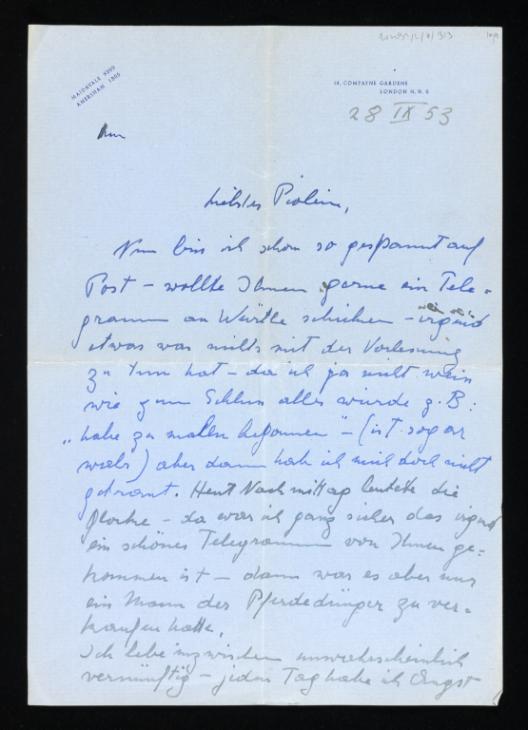 MAIDA VALE
AMERSHAM
14, COMPAYNE GARDENS
LONDON N.W. 6
28 IX 53
Liebstes Piolein,
Nun bin ich schon so gespannt auf
Post – wollte Ihnen gerne ein Tele-
gramm an schicken – irgend
etwas was nichts mit der Vorlesung
zu tun hat – da ich ja nicht weiss
wie zum Schluss alles wurde z.B:
„habe zu malen begonnen" – (ist sogar
wahr) aber dann hab ich mich doch nicht
getraut. Heut Nachmittag leutete die
Glocke – da war ich ganz sicher das irgend
ein schönes Telegramm von Ihnen ge-
kommen ist – dann war es aber nur
ein Mann der Pferdedünger zu ver-
kaufen hatte.
Ich lebe inzwischen unwahrscheinlich
vernünftig – jeden Tag habe ich Angst